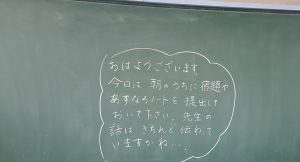 おはようございます
今日は 朝のうちに宿題や
あすなろノートを 提出して
おいて下さい。先生の
話は きちんと 伝わって
いますかね…。